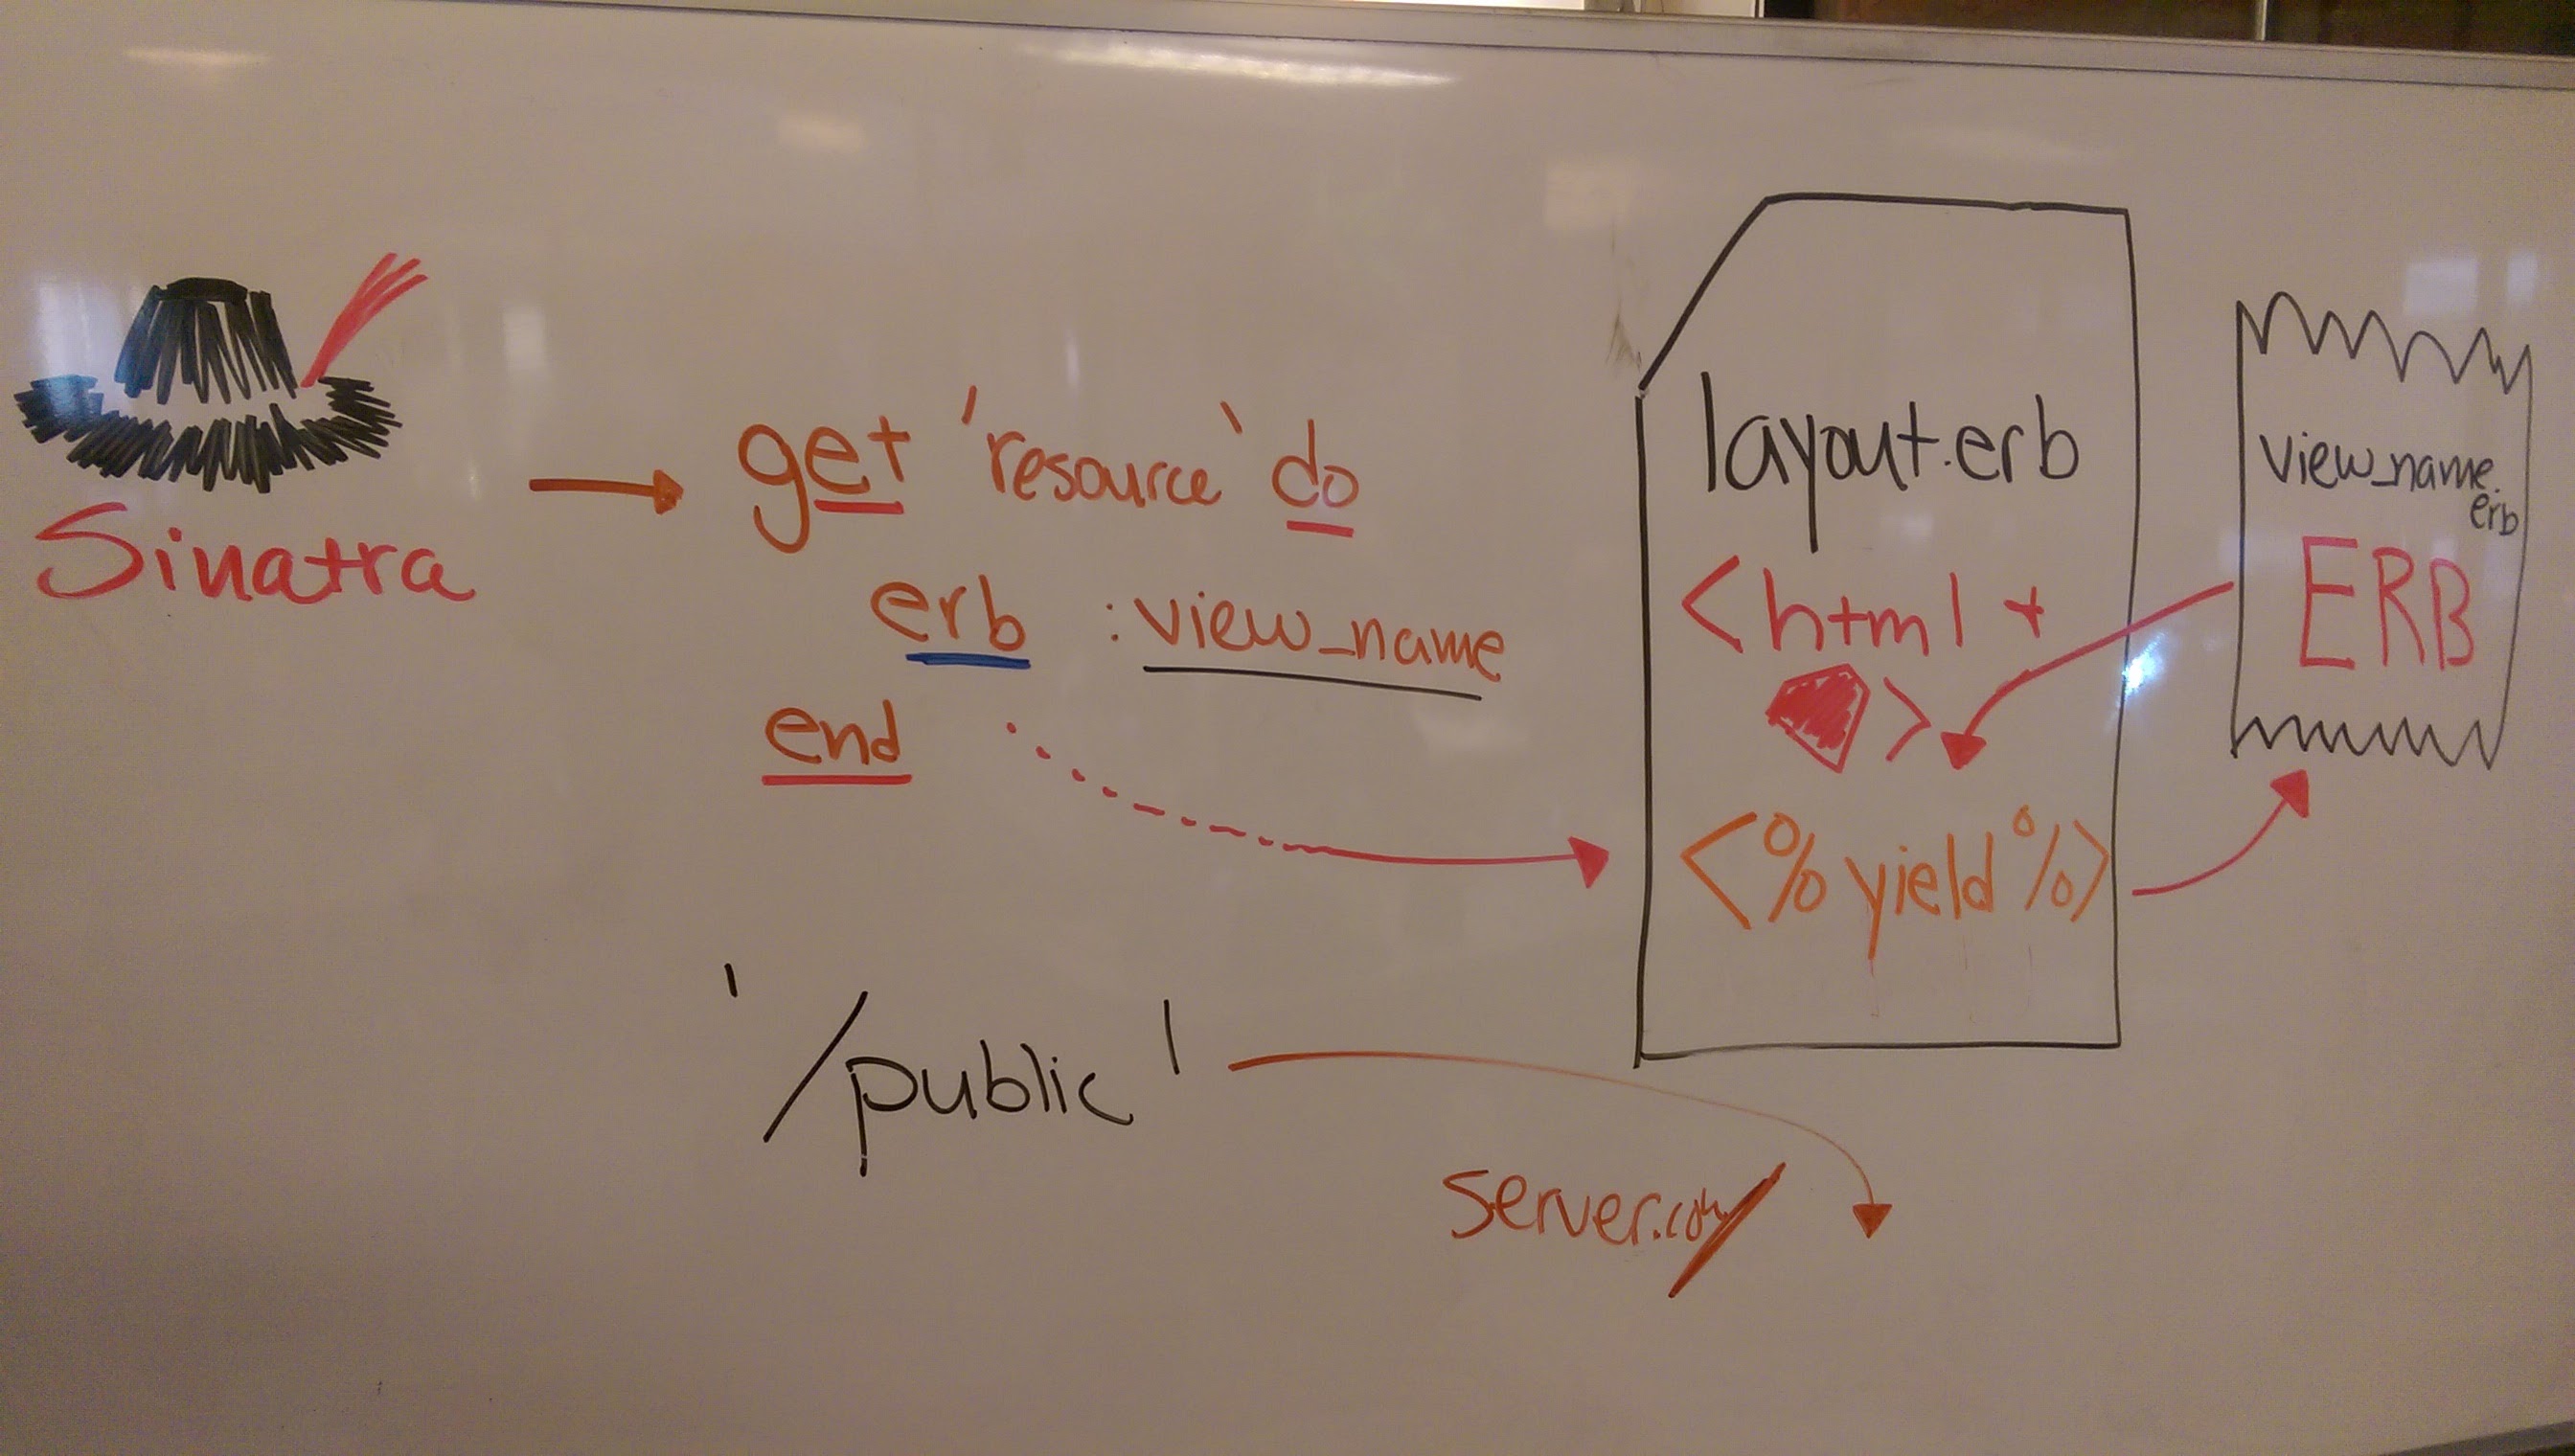 Sinatra
get 'resource' do
erb :view_name
end
layout.erb
<html +
>
<% yield %>
view_name.
erb
ERB
'/public'
server.com/